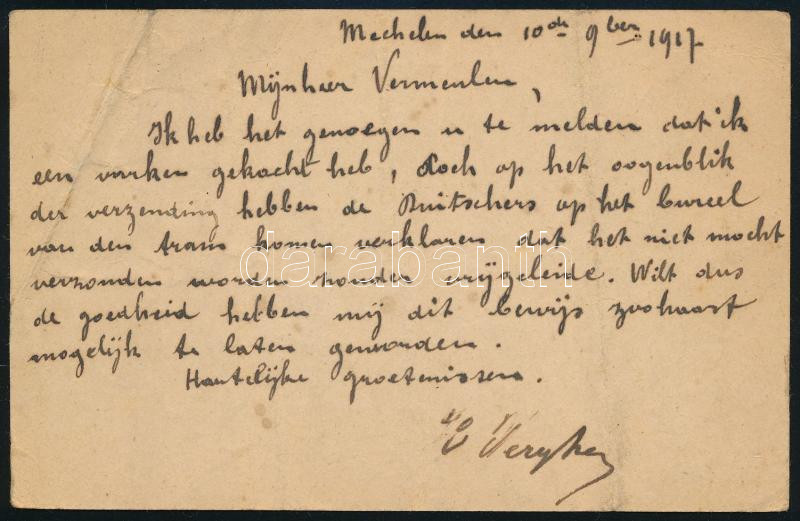 Mechelen den 10de 9ber 1917
Mijnheer Vermeulen,
Ik heb het genoegen u te melden dat ik
een varken gekocht heb, doch op het oogenblik
der verzending hebben de Duitschers op het bureel
van den tram komen verklaren dat het niet mocht
verzonden worden zonder vrijgeleide. Wilt dus
de goedheid hebben mij dit bewijs zoohaast
mogelijk te laten geworden.
Hartelijke groetenissen.
darabanth